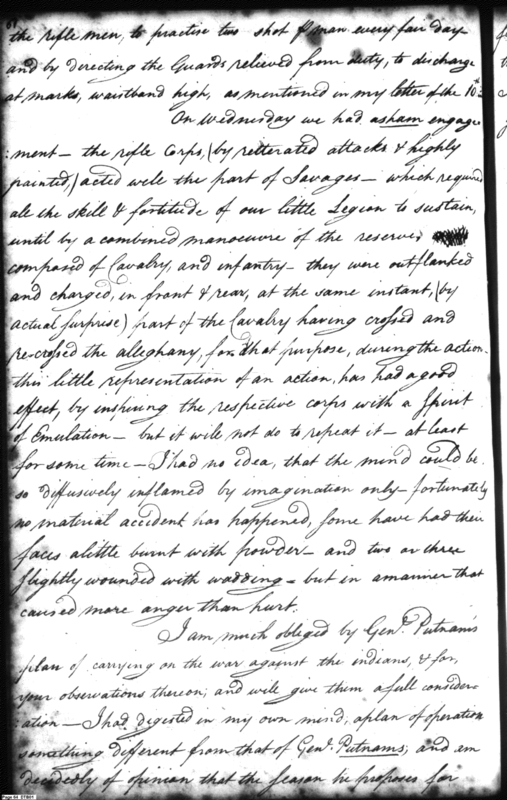 61
the rifle men, to practise two shot ℔ man every fair day
and by directing the Guards relieved from duty, to discharge
at marks, waistband high, as mentioned in my letter of the 10th:
On Wednesday we had a sham engage
:ment — the rifle Corps, (by reiterated attacks & highly
painted,) acted well the part of Savages — which required
all the skill & fortitude of our little Legion to sustain,
until by a combined manoeuvre of the reserve,
composed of Cavalry, and infantry — they were outflanked
and charged, in front & rear, at the same instant, (by
actual surprise) part of the Cavalry having crossed and
recrossed the alleghany, for that purpose, during the action.
this little representation of an action, has had a good
effect, by inspiring the respective corps with a Spirit
of Emulation — but it will not do to repeat it — at least
for some time — I had no idea, that the mind could be
so diffusively inflamed by imagination only — fortunately
no material accident has happened, some have had their
faces a little burnt with powder — and two or three
slightly wounded with wadding — but in a manner that
caused more anger than hurt.
I am much obliged by Genl. Putnam's
plan of carrying on the war against the indians, & for,
your observations thereon, and will give them a full consider
:ation — I had digested in my own mind, a plan of operation
something different from that of Genl. Putnams, and am
decidedly of opinion that the season he proposes for